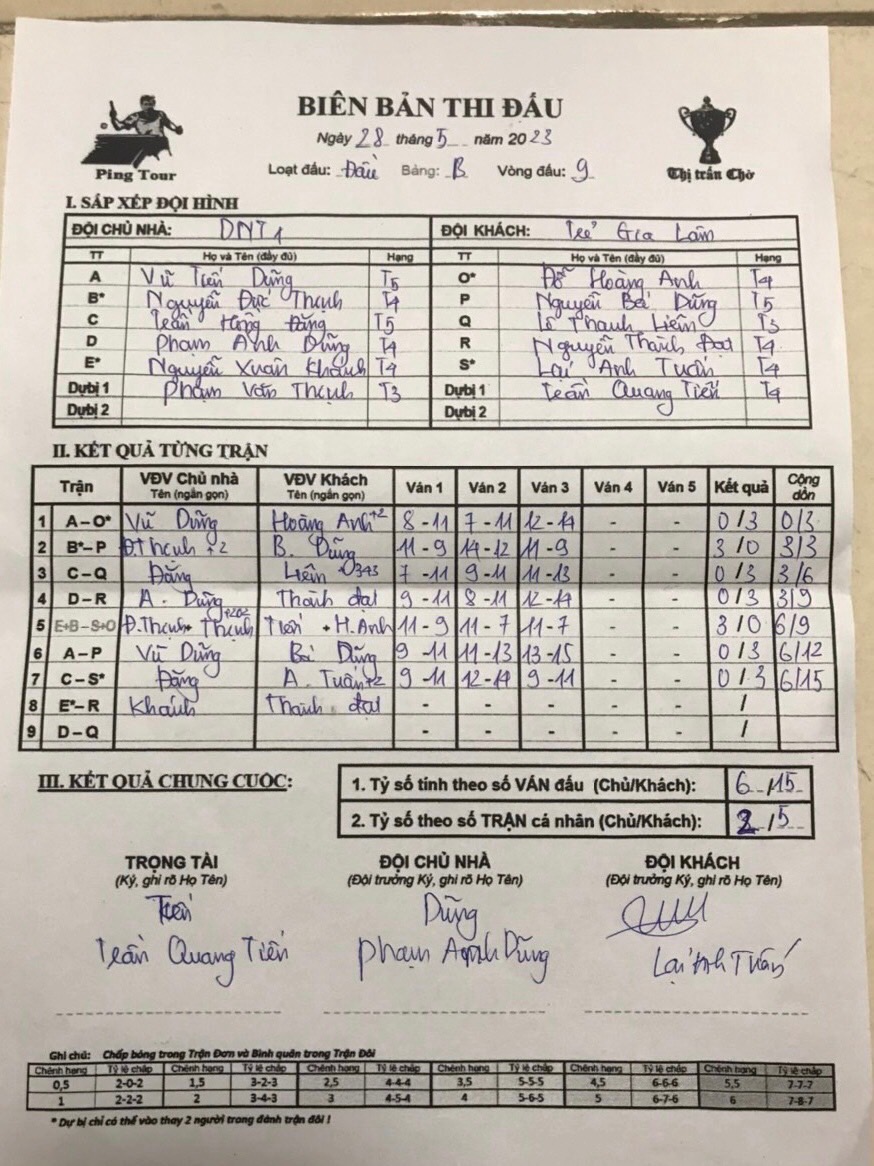 BIÊN BẢN THI ĐẤU
Ngày 28 tháng 5 năm 2023
Ping Tour
Loạt đấu: Đầu Bảng: B Vòng đấu: 9
Thị trấn Chờ
I. SẮP XẾP ĐỘI HÌNH
ĐỘI CHỦ NHÀ: DNT1 ĐỘI KHÁCH: Trẻ Gia Lâm
TT Họ và Tên (đầy đủ) Hạng TT Họ và Tên (đầy đủ) Hạng
A Vũ Tiến Dũng T5 O* Đỗ Hoàng Anh T4
B* Nguyễn Đức Thịnh T4 P Nguyễn Bá Dũng T5
C Trần Hồng Đăng T5 Q Lê Thanh Liêm T3
D Phạm Anh Dũng T4 R Nguyễn Thành Đạt T4
E* Nguyễn Xuân Khánh T4 S* Lại Anh Tuấn T4
Dựbị 1 Phạm Văn Thịnh T3 Dựbị 1 Trần Quang Tiến T4
Dựbị 2 Dựbị 2
II. KẾT QUẢ TỪNG TRẬN
Trận VĐV Chủ nhà Tên (ngắn gọn) VĐV Khách Tên (ngắn gọn) Ván 1 Ván 2 Ván 3 Ván 4 Ván 5 Kết quả Cộng dồn
1 A – O* Vũ Dũng Hoàng Anh+2 8 - 11 7 - 11 12 - 14 - - 0 / 3 0/3
2 B*– P Đ Thịnh +2 B. Dũng 11 - 9 14 - 12 11 - 9 - - 3 / 0 3/3
3 C – Q Đăng Liêm 343 7 - 11 9 - 11 11 - 13 - - 0 / 3 3/6
4 D – R A. Dũng Thành đạt 9 - 11 8 - 11 12 - 14 - - 0 / 3 3/9
5 E+B – S+O Đ.Thịnh+ Thịnh +202 Tiến + H.Anh 11 - 9 11 - 7 11 - 7 - - 3 / 0 6/9
6 A – P Vũ Dũng Bá Dũng 9 - 11 11 - 13 13 - 15 - - 0 / 3 6/12
7 C – S* Đăng A. Tuấn+2 9 - 11 12 - 14 9 - 11 - - 0 / 3 6/15
8 E*– R Khánh Thành đạt - - - - - /
9 D – Q - - - - - /
III. KẾT QUẢ CHUNG CUỘC:
1. Tỷ số tính theo số VÁN đấu (Chủ/Khách): 6 / 15
2. Tỷ số theo số TRẬN cá nhân (Chủ/Khách): 2 / 5
TRỌNG TÀI ĐỘI CHỦ NHÀ ĐỘI KHÁCH
(Ký, ghi rõ Họ Tên) (Đội trưởng Ký, ghi rõ Họ Tên) (Đội trưởng Ký, ghi rõ Họ Tên)
Tiến Dũng
Trần Quang Tiến Phạm Anh Dũng Lại Anh Tuấn
Ghi chú: Chấp bóng trong Trận Đơn và Bình quân trong Trận Đôi
Chênh hạng Tỷ lệ chấp Chênh hạng Tỷ lệ chấp Chênh hạng Tỷ lệ chấp Chênh hạng Tỷ lệ chấp Chênh hạng Tỷ lệ chấp Chênh hạng Tỷ lệ chấp
0,5 2-0-2 1,5 3-2-3 2,5 4-4-4 3,5 5-5-5 4,5 6-6-6 5,5 7-7-7
1 2-2-2 2 3-4-3 3 4-5-4 4 5-6-5 5 6-7-6 6 7-8-7
* Dự bị chỉ có thể vào thay 2 người trong đánh trận đôi !